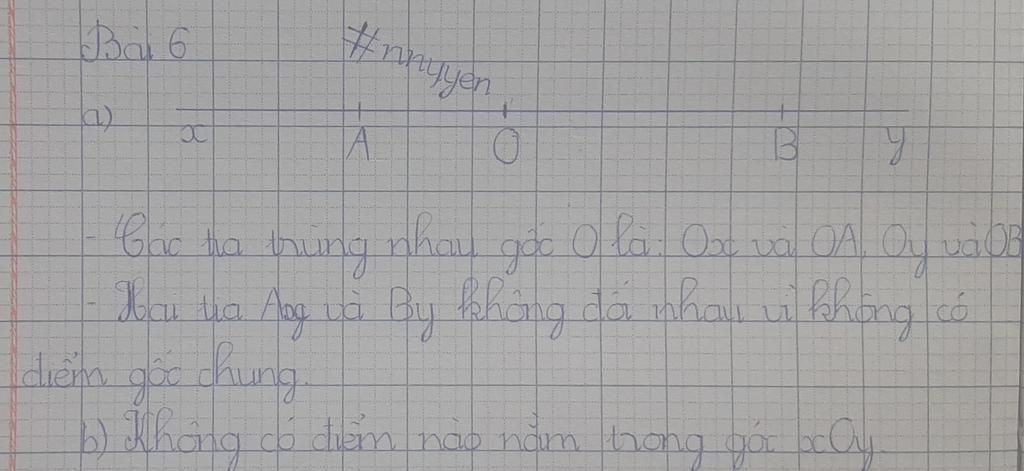 Bài 6 #nnyyen
a) x A O B y
- Các tia trùng nhau gốc O là: Ox và OA, Oy và OB
- Hai tia và By không đối nhau vì không có
điểm gốc chung.
b) Không có điểm nào nằm trong góc xOy.